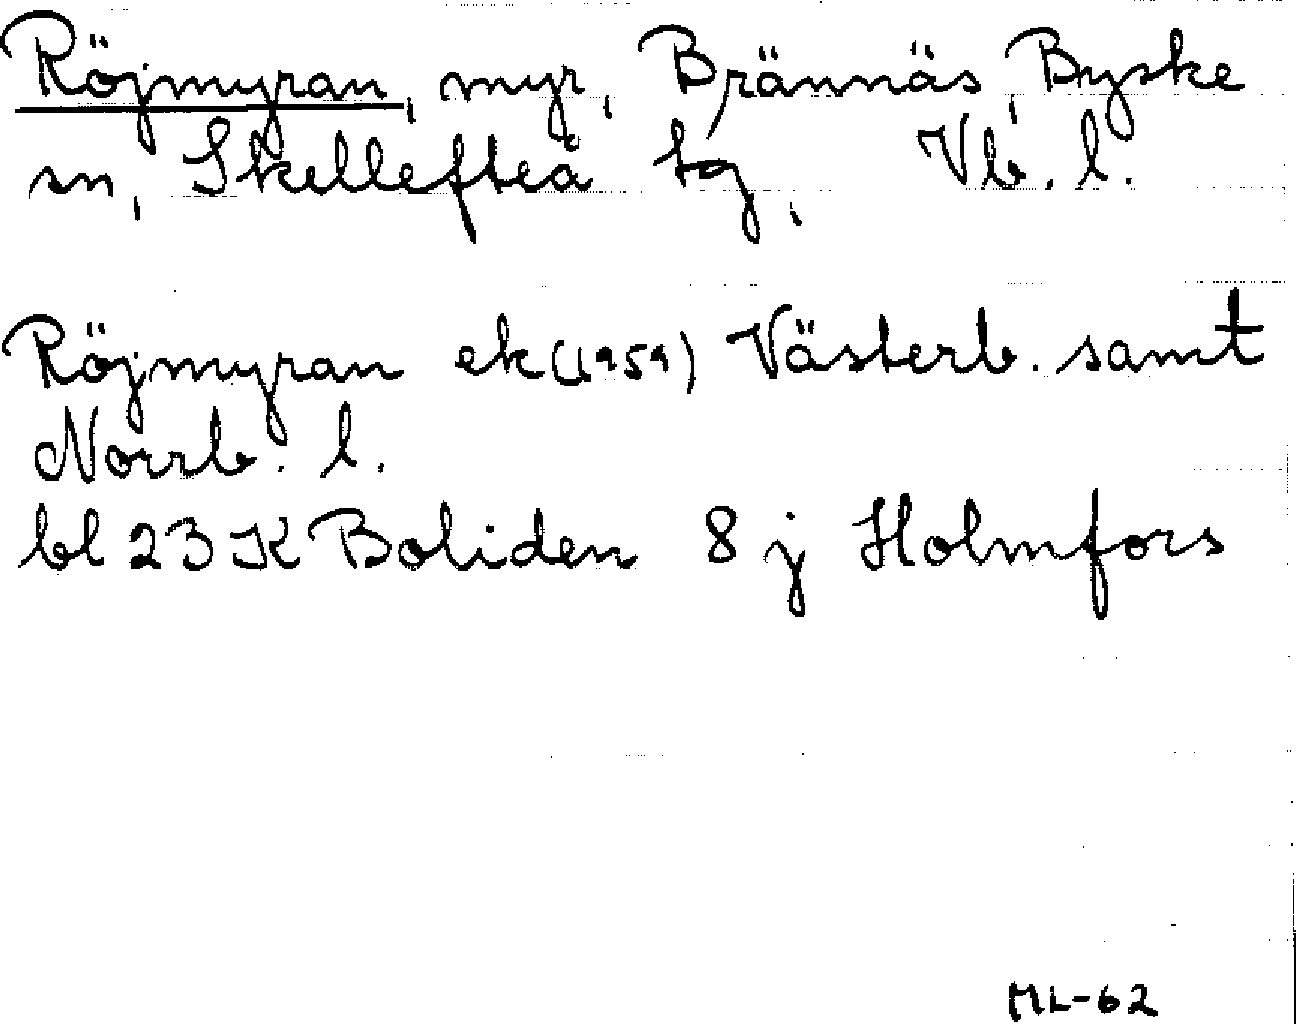 Röjmyran, myr, Brännäs, Byske
sn, Skellefteå tg, Vb. l.
Röjmyran ek (1959) Västerb. samt
Norrb. l.
bl 23 K Boliden 8 j Holmfors
ML-62